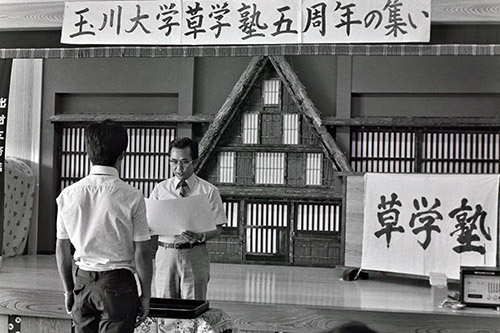 玉川大学草学塾五周年の集い
草学塾